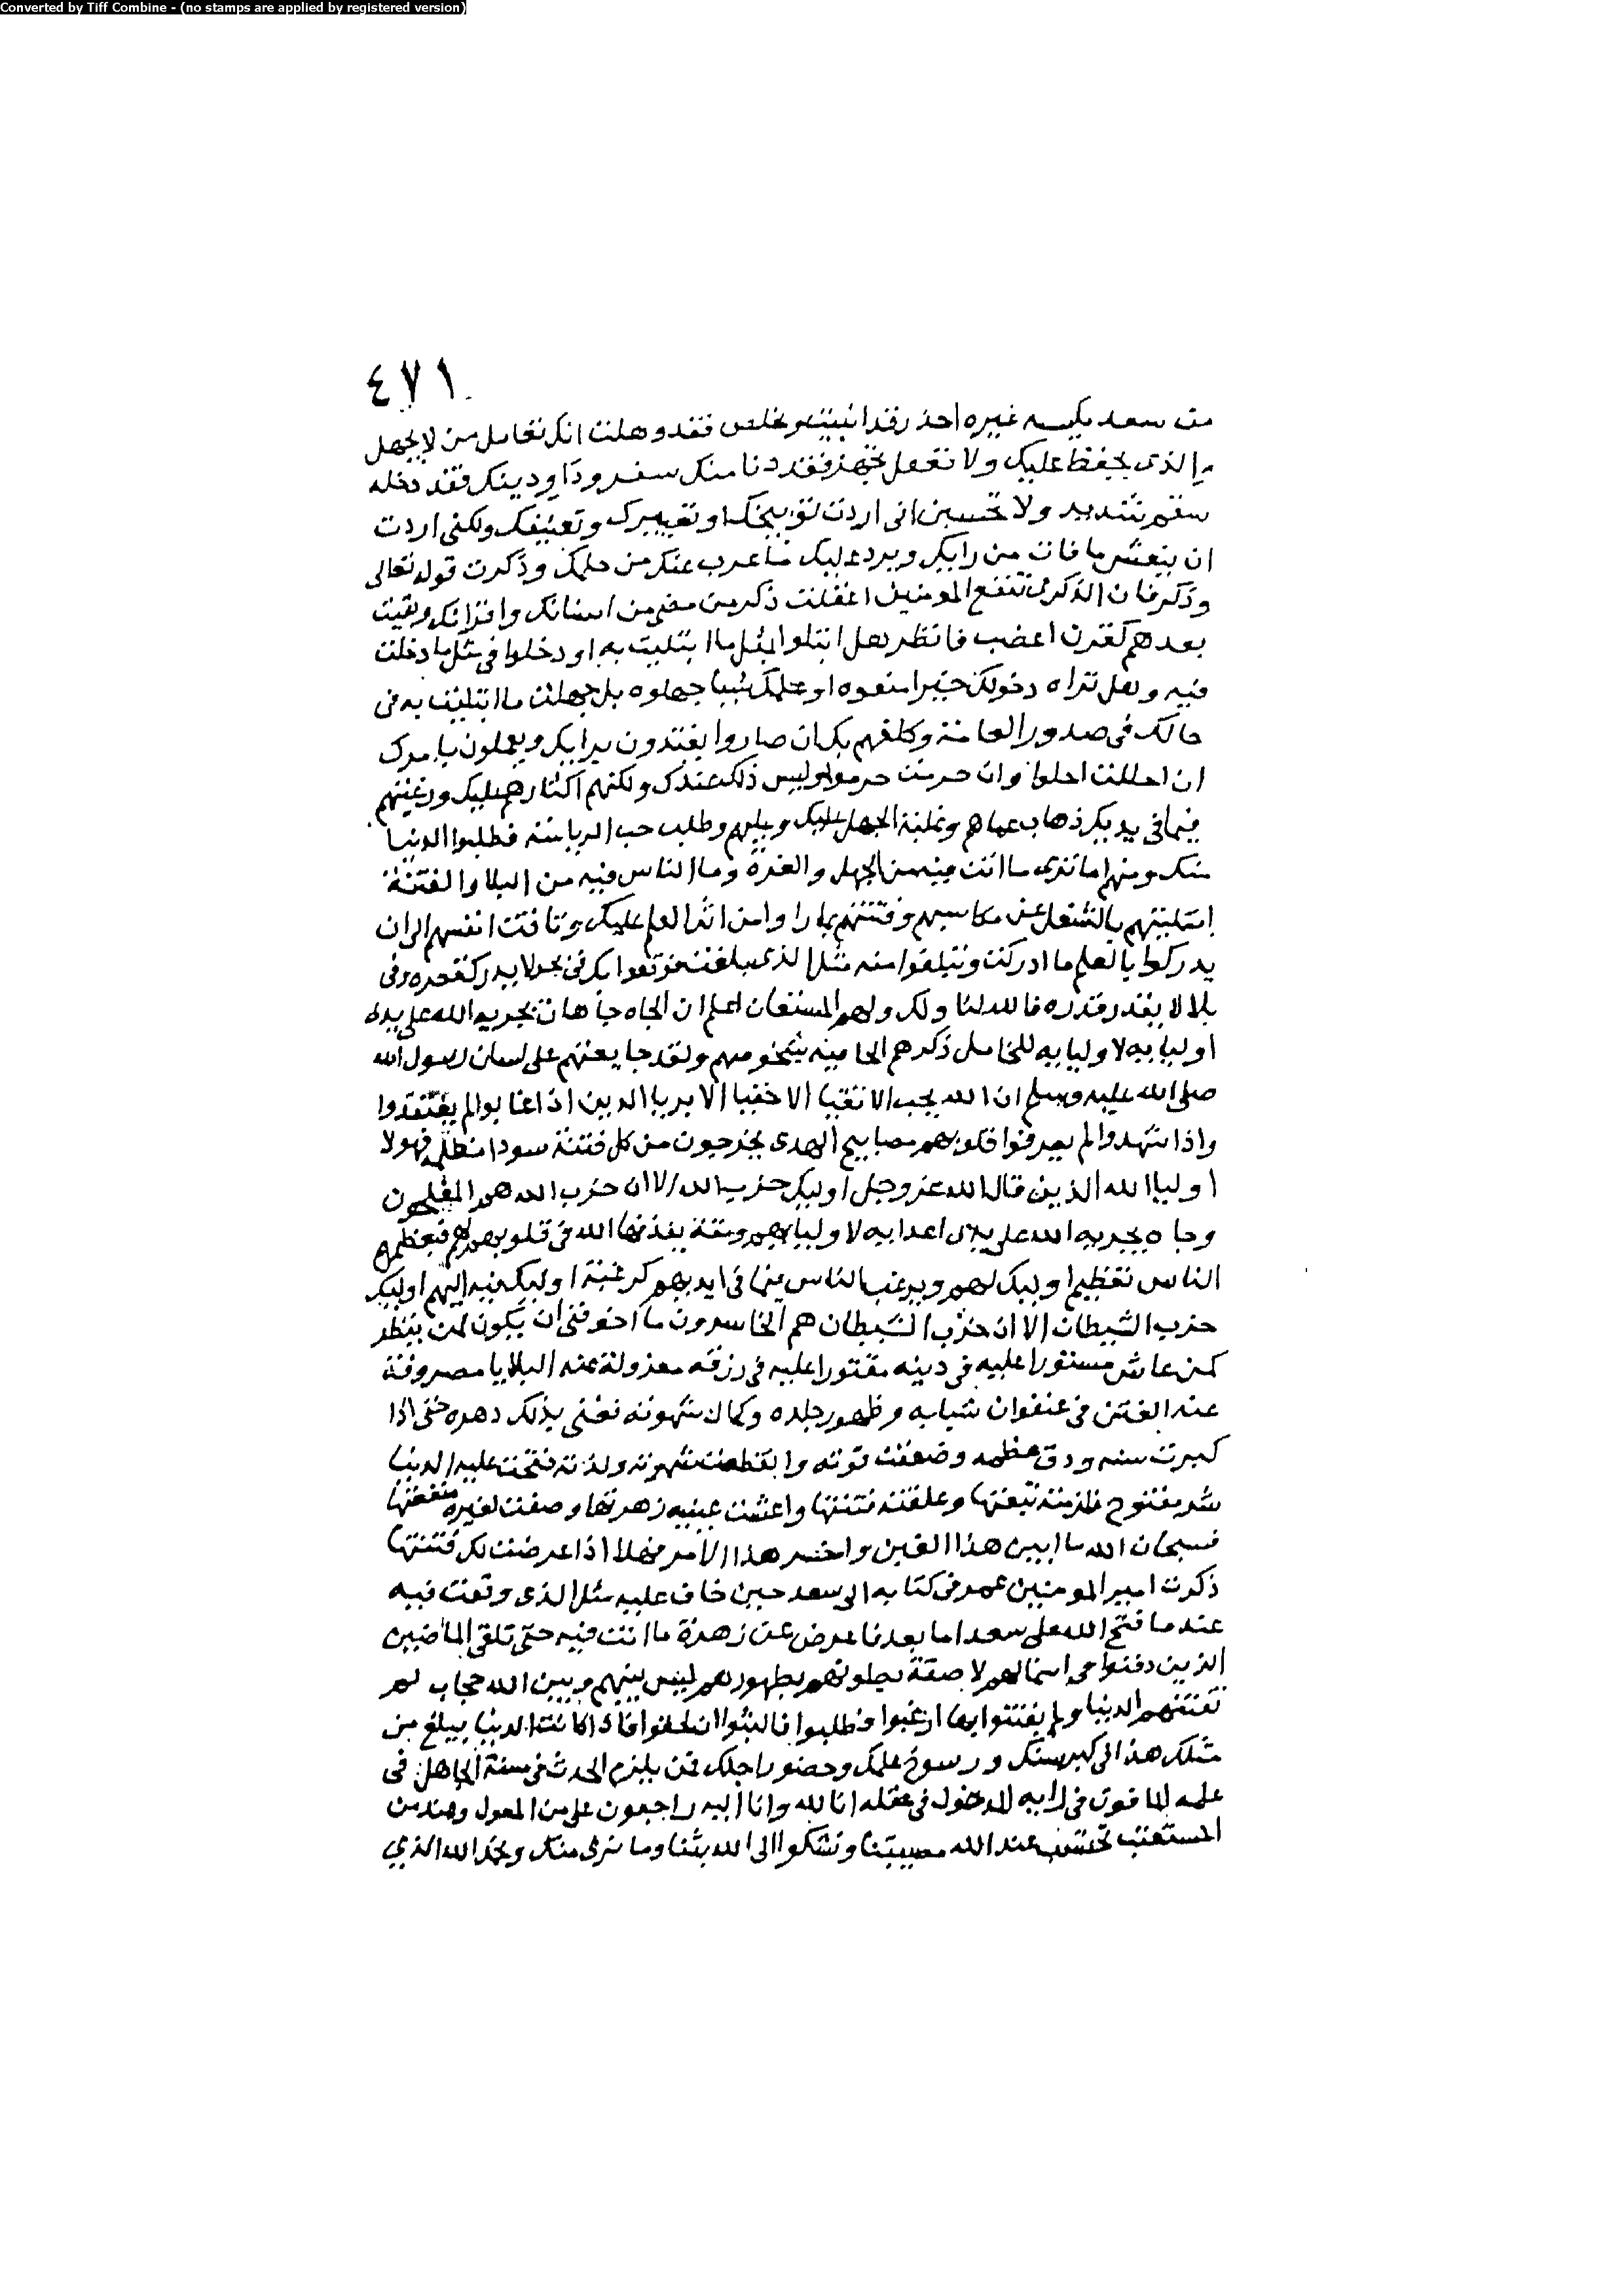 Converted by Tiff Combine - (no stamps are applied by registered version)
٤٧١
من سعد بكسبه غيره احذر فقد انبيت وتخلص فقد وهلت انك تعامل من لا يجهل
والذى يحفظ عليك ولا تغفل تجهز فقد دنا منك سفر وداو دينك فقد دخله
سقم شديد ولا تحسبن انى اردت توبيخك او تعييرك وتعنيفك ولكنى اردت
ان ينعش ما فات من رايك ويرد عليك ما عزب عنك من حلمك وذكرت قوله تعالى
وذكر فان الذكرى تنفع المومنين اغفلت ذكر من مضى من اسنانك واقرانك وبقيت
بعدهم كقرن اعضب فانظر هل ابتلوا بمثل ما ابتليت به او دخلوا فى مثل ما دخلت
فيه وهل تراه دخولك خيرا منعوه او علمك شيا جهلوه بل جهلت ما ابتليت به فى
حالك فى صدور العامة وكلفهم بك ان صاروا يقتدون برايك ويعملون بامرك
ان احللت احلوا وان حرمت حرموا وليس ذلك عندك ولكنهم اكبارهم عليك ورغبتهم
فيما فى يديك ذهاب عماهم وغلبة الجهل عليك وعليهم وطلب حب الرياسة وطلبوا الدنيا
منك ومنهم اما ترى ما انت فيه من الجهل والغرة وما الناس فيه من البلا والفتنة
ابتليتهم بالشغل عن مكاسبهم وفتنتهم بما راوا من اثر العلم عليك وتاقت انفسهم الى ان
يدركوا بالعلم ما ادركت ويبلغوا منه مثل الذى بلغت فوقعوا بك فى بحر لا يدرك قعره وفى
بلا لا يقدر قدره فالله لنا ولك ولهم المستعان اعلم ان الجاه جاهان يجريه الله على يدى
اوليايه لاوليايه للخامل ذكرهم الخافيه شخوصهم ولقد جا نعتهم على لسان رسول الله
صلى الله عليه وسلم ان الله يحب الاتقيا الاخفيا الابريا الذين اذا غابوا لم يفتقدوا
واذا شهدوا لم يعرفوا قلوبهم مصابيح الهدى يخرجون من كل فتنة سودا مظلمه فهولا
اوليا الله الذين قال الله عز وجل اوليك حزب الله الا ان حزب الله هم المفلحون
وجاه يجريه الله على يدى اعدايه لاوليايهم ومقة يقذفها الله فى قلوبهم لهم فيعظمهم
الناس تعظيم اوليك لهم ويرغب الناس فيما فى ايديهم كرغبة اوليك فيه اليهم اوليك
حزب الشيطان الا ان حزب الشيطان هم الخاسرون ما اخوفنى ان يكون لمن ينظر
كمن عاش مستورا عليه فى دينه مقتورا عليه فى رزقه معزولة عنه البلايا مصروفة
عنه الفتن فى عنفوان شبابه وظهور جلده وكمال شهوته فعنى بذلك دهره حتى اذا
كبرت سنه ودق عظمه وضعفت قوته وانقطعت شهوته ولذته فتحت عليه الدنيا
شر مفتوح فلزمته تبعتها وعلقته فتنتها واعشت عينيه زهرتها وصفت لغيره منفعتها
فسبحان الله ما ابين هذا الغبن واخسر هذا الامر فهلا اذا عرضت لك فتنتها
ذكرت امير المومنين عمر فى كتابه الى سعد حين خاف عليه مثل الذى وقعت فيه
عند ما فتح الله على سعد اما بعد فاعرض عن زهرة ما انت فيه حتى تلقى الماضين
الذين دفنوا فى اسمالهم لاصقة بطونهم بظهورهم ليس بينهم وبين الله حجاب لم
تفتنهم الدنيا ولم يفتتنوا بها ارغبوا فطلبوا فما لبثوا ان لحقوا فاذا كانت الدنيا يبلغ من
مثلك هذا فى كبر سنك ورسوخ علمك وحضور اجلك فمن يلزم الحدث فى سنة الجاهل فى
علمه المافون فى رايه المدخول فى عقله انا لله وانا اليه راجعون على من المعول وعند من
المستعتب نحتسب عند الله مصيبتنا ونشكوا الى الله بثنا وما نرى منك ونحمد الله الذي